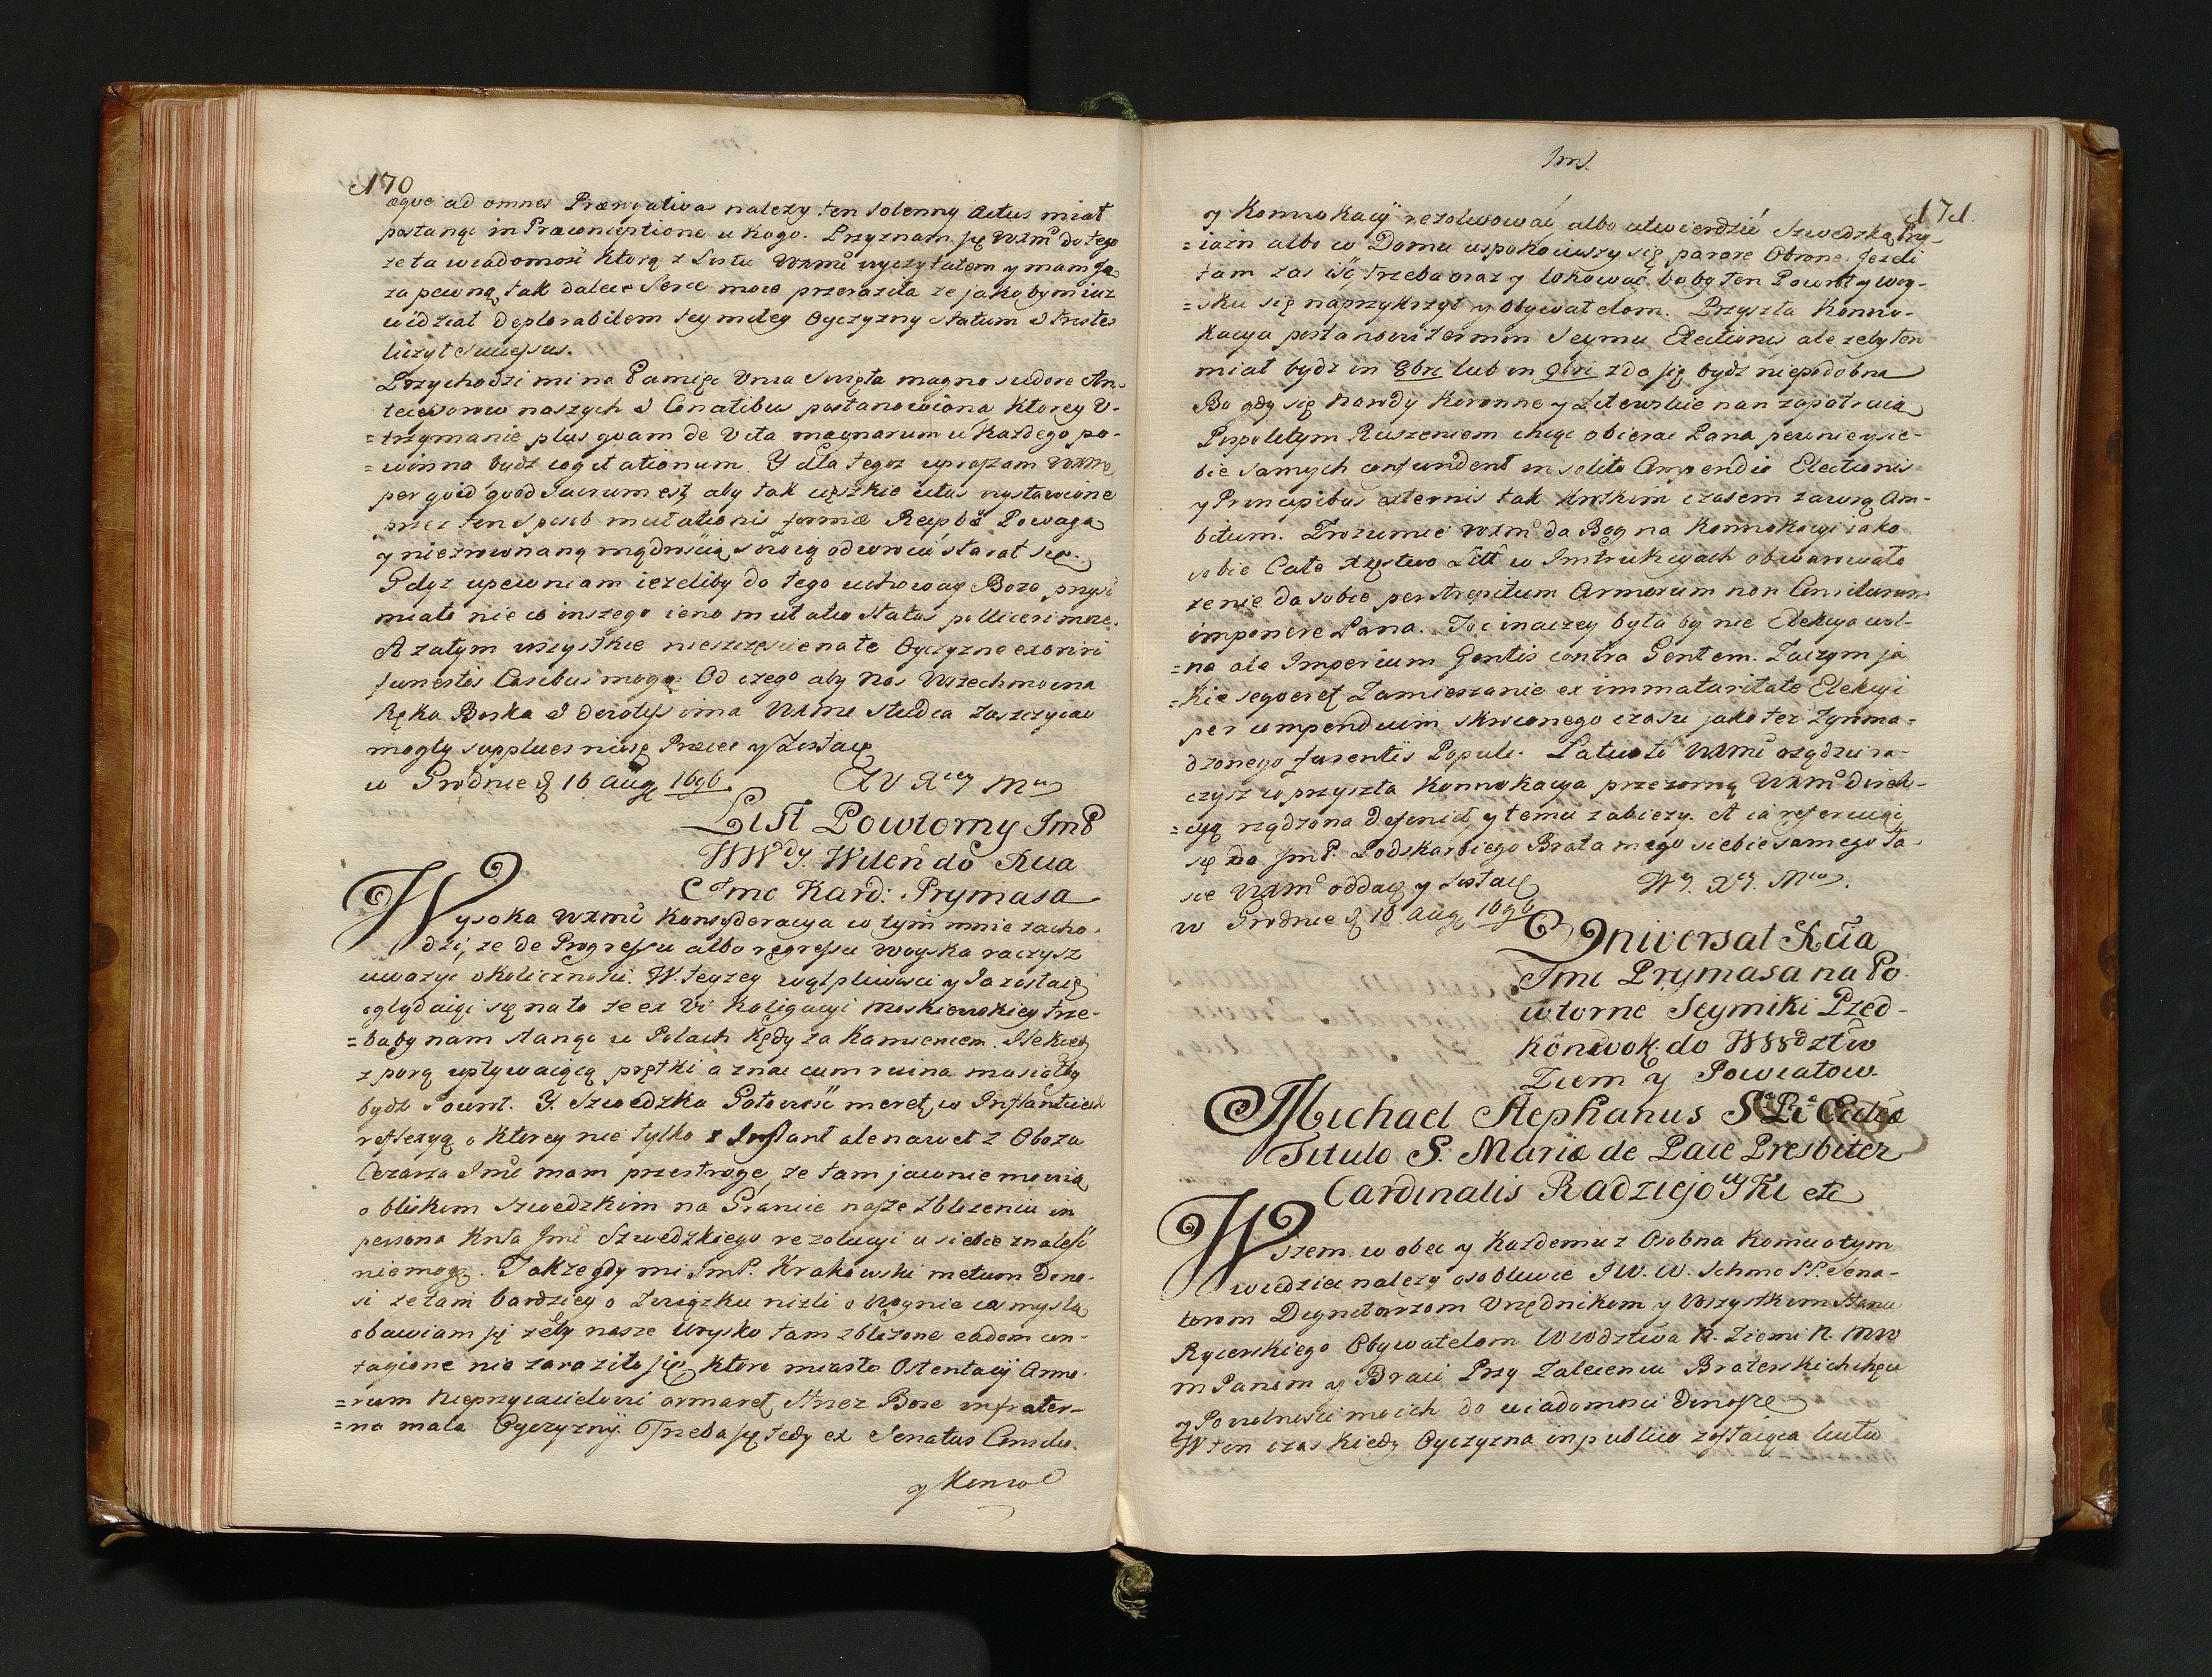 170
æque ad omnes Prærogativas nalezy ten solenny Actus miał
postanąć in Præconceptione u kogo. Przyznam się WXMci do tego
ze ta wiadomość ktorą z Listu WXMci wyczytałem y mam Ją
za pewną, tak dalece Serce moie przeraziła ze jakobym iuz
widział deplorabilem tey miłey Oyczyzny statum & tristes
liczył successus.
Przychodzi mi na Pamięć Unia Swięta magno sudore An-
tecessorow naszych & Conatibus postanowiona ktorey U-
=trzymanie plus quam de Vita magnarum u kazdego po-
=winna bydź cogitationum. Y dla tegoz upraszam WXMci
per quid quod Sacrum est, aby tak cięzkie ictus wystawione
przez ten sposob mutationis formæ Reipbæ Powagą
y niezrownaną mądroscią swoią odwrocić starał się.
Gdyz upewniam iezeliby do tego uchoway Boze przyść
miało nie co inszego ieno mutatio Status polliceri moze.
A zatym wszystkie nieszczęscie na te Oyczyzne exoriri
funestis Casibus mogą. Od czego aby nas Wszechmocna
Ręka Boska & devotissima WXMci studia zaszczycać
mogły supplices niosę Preces y Zostaię
w Grodnie d 16 Aug 1696. XV Xcey Mci
List Powtorny JmP
WWdy Wilen do Xcia
Jmc Kard: Prymasa
Wysoka WXMci Konsyderacya w tym mnie zacho-
dzi, ze de Progressu albo regressu woyska raczysz
uwazyć okolicznosci. W teyzey wątpliwosci y Ja zostaię
oglądaiąc się na to ze ex Vi Koligacyi Moskiewskiey trze-
=baby nam stanąć w Polach kędy za Kamieniem.
z porą upływaiącą prętki a znać cum ruina musiałby
bydź Powrot. Y Szwedzka Gotowość meret w Inflanciech
reflexyą o ktorey nie tylko z Inflant ale nawet z Obozu
Cezarza Jmci mam przestrogę, ze tam jawnie mowią
o bliskim Szwedzkim na Granice nasze zblizeniu in
persona Krola Jmci Szwedzkiego rezolucyi u siebie znalesć
nie mogę. Takze gdy mi JmP. Krakowski metum dono-
si ze tam bardziey o Związku nizli o Woynie ex mysla
obawiam się zeby nasze Woysko tam zblizone eadem con-
tagione nie zaraziło się, ktore miasto Ostentacyi Armo-
=rum Nieprzyiacielowi armaret, strzez Boze in frater-
=na mala Oyczyzny. Trzeba się tedy ex Senatus Consilio
y Konwo
171.
y Konwokacyi rezolwować albo utwierdzić Szwedzką Przy-
=iazn albo w Domu uspokoiwszy się parare Obronę. Jezeli
tam zas iść trzeba oraz y lokować, boby ten Powrot y Woy-
=sku się naprzykrzył y Obywatelom. Przyszła Konwo-
kacya postanowi Termin Seymu Electionis ale zeby ten
miał bydź in 8bri lub in 9bri zda się bydź niepodobna
Bo gdy się Narody Koronne y Litewskie nan zapatruią
Pospolitym Ruszeniem chcąc obierać Pana pewnie y sie-
bie samych confundent insolito Compendio Electionis
y Principibus externis tak krotkim czasem zawrą Am-
bitum. Zrozumie WXMć da Bog na Konwokacyi iako
sobie Całe Xięstwo Litt w Instrukcyach obwarowało
ze nie da sobie per strepitum Armorum non Consiliorum
imponere Pana. Toć inaczey była by nie Elekcya wol-
=na ale Imperium Gentis contra Gentem. Zaczym ja
=kie seqveret Zamieszanie ex immaturitate Elekcyi
per compendium skroconego czasu jako tez Zgroma-
dzonego furentis Populi. Łatwo to WXMć osądzić ra-
czysz co przyszła Konwokacya przezorną WXMci Direk-
=cyą rządzona definiet, y temu zabiezy. A ia referuiąc
się do JmP. Podskarbiego Brata mego siebie samego Ła-
sce WXMci oddaię y Zostaię Wy. Xcy. Mci.
w Grodnie d 16 Aug 1696
Universał Xcia
Jmc Prymasa na Po-
wtorne Seymiki Przed-
Konwok: do WWdztw
Ziem y Powiatow.
Michael Stephanus S
Titulo S. Mariæ de Pace Presbiter
Cardinalis Radziejowski etc
Wszem w obec y Kazdemu z Osobna Komu o tym
wiedzieć nalezy osobliwie JW. W. Ichmc PP. Sena-
torom Dignitarzom Urzędnikom y Wszystkim Stanu
Rycerskiego Obywatelom Wwodztwa N. Ziemi N. MW
m Panom y Braci Przy Zaleceniu Braterskich chęci
y Powolnosci moich do wiadomosci Donoszę
W ten czas kiedy Oyczyzna in publico zostaiąca luctu